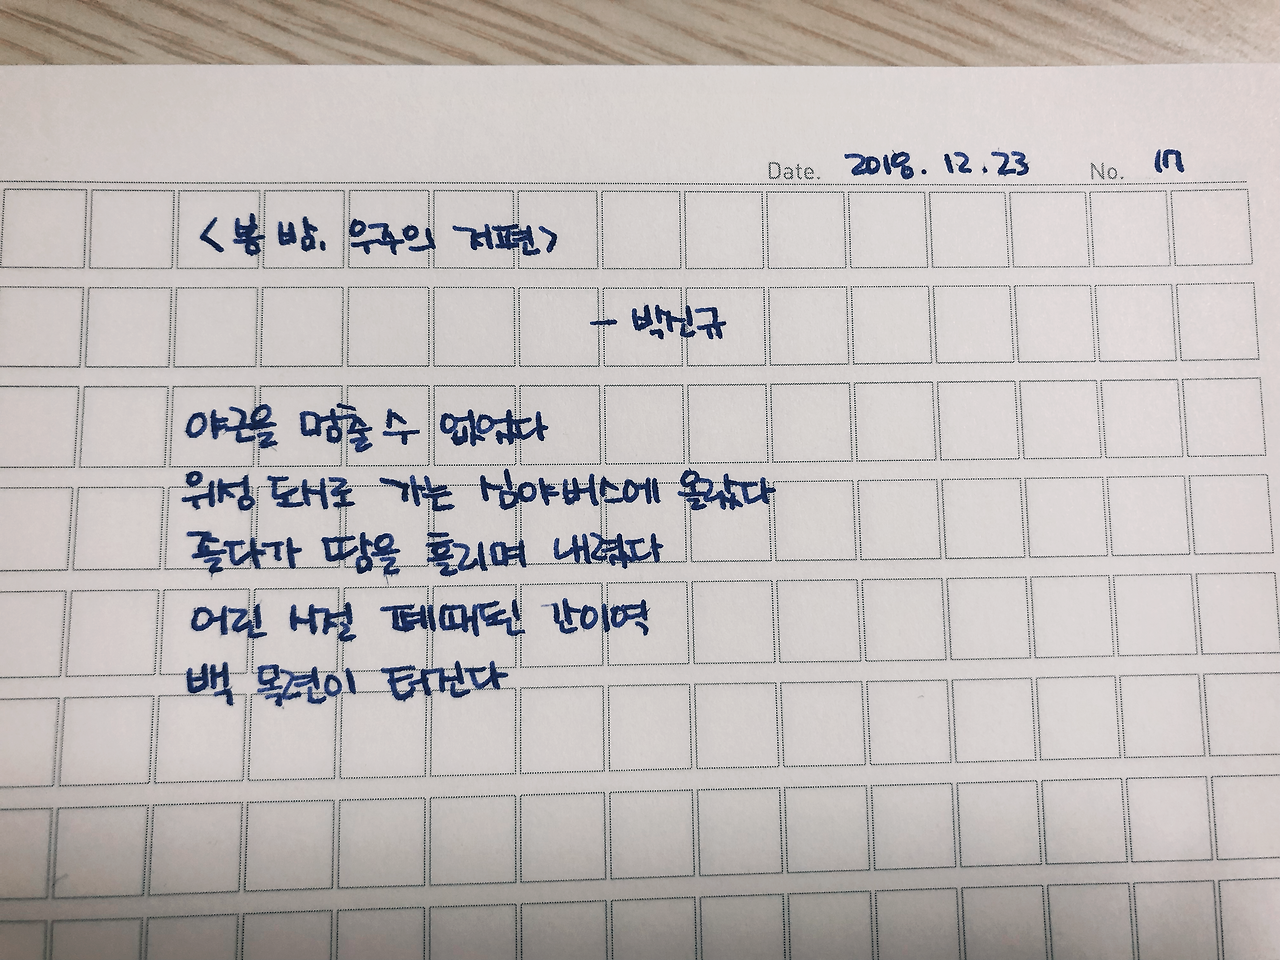 Date. 2018. 12. 23 No. 17
<봄 밤, 우주의 저편>
- 박신규
야근을 멈출 수 없었다
위성 도시로 가는 심야버스에 올랐다
졸다가 땀을 흘리며 내렸다
어린 시절 폐쇄된 간이역
백 목련이 터진다